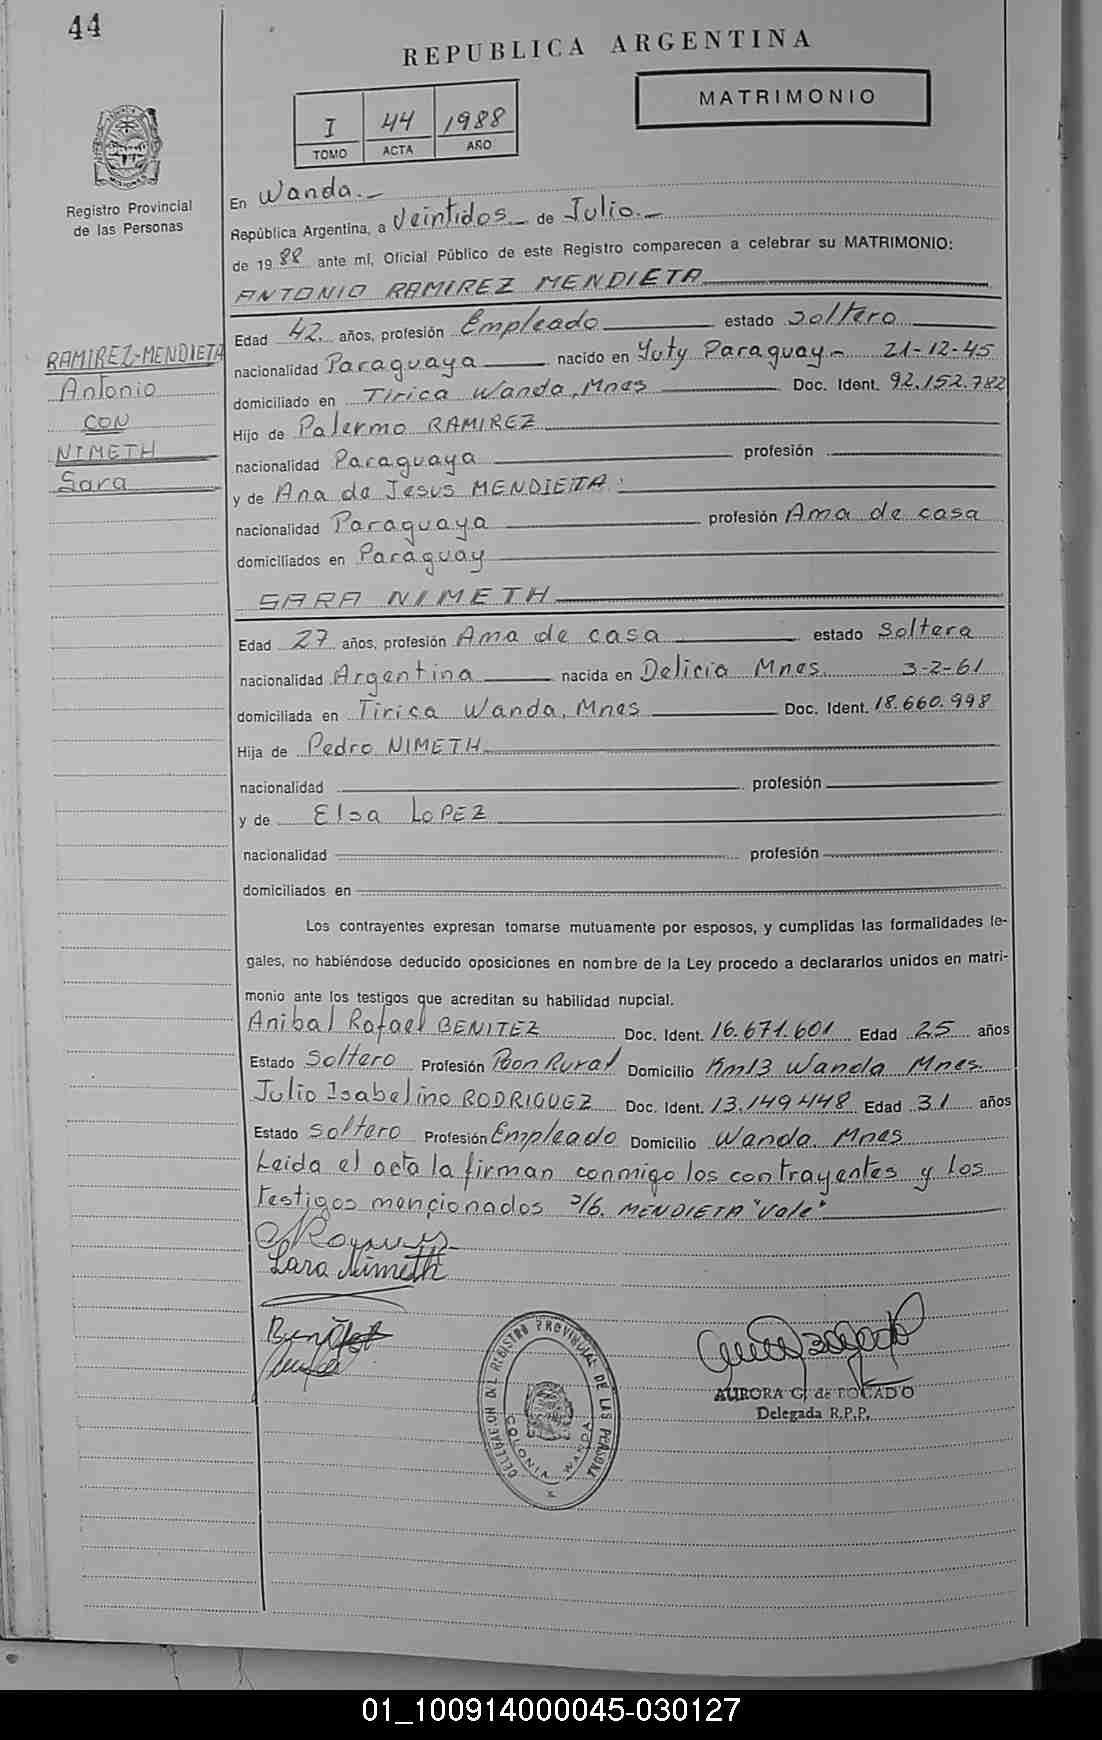 44
REPUBLICA ARGENTINA
MATRIMONIO
I 44 1988
TOMO ACTA AÑO
Registro Provincial
de las Personas
En Wanda.-
República Argentina, a Veintidos de Julio.-
de 1988 ante mí, Oficial Público de este Registro comparecen a celebrar su MATRIMONIO:
ANTONIO RAMIREZ MENDIETA
RAMIREZ-MENDIETA
Antonio
CON
NIMETH
Sara
Edad 42. años, profesión Empleado estado Soltero
nacionalidad Paraguaya nacido en Yuty Paraguay- 21-12-45
domiciliado en Tirica Wanda, Mnes Doc. Ident. 92.152.782
Hijo de Palermo RAMIREZ
nacionalidad Paraguaya profesión
y de Ana de Jesus MENDIETA:
nacionalidad Paraguaya profesión Ama de casa
domiciliados en Paraguay
SARA NIMETH
Edad 27 años, profesión Ama de casa estado Soltera
nacionalidad Argentina nacida en Delicia Mnes. 3-2-61
domiciliada en Tirica Wanda, Mnes Doc. Ident. 18.660.998
Hija de Pedro NIMETH
nacionalidad profesión
y de Elsa LOPEZ
nacionalidad profesión
domiciliados en
Los contrayentes expresan tomarse mutuamente por esposos, y cumplidas las formalidades le-
gales, no habiéndose deducido oposiciones en nombre de la Ley procedo a declararlos unidos en matri-
monio ante los testigos que acreditan su habilidad nupcial.
Anibal Rafael BENITEZ Doc. Ident. 16.671.601 Edad 25 años
Estado Soltero Profesión Peon Rural Domicilio Km13 Wanda Mnes.
Julio Isabelino RODRIGUEZ Doc. Ident. 13.149.448 Edad 31 años
Estado Soltero Profesión Empleado Domicilio Wanda. Mnes
Leida el acta la firman conmigo los contrayentes y los
testigos mencionados s/b. MENDIETA "Vale"
Sara Nimeth
DELEGACION DEL REGISTRO PROVINCIAL DE LAS PERSONAS
COLONIA WANDA
AURORA G. de BOGADO
Delegada R.P.P.
01_100914000045-030127